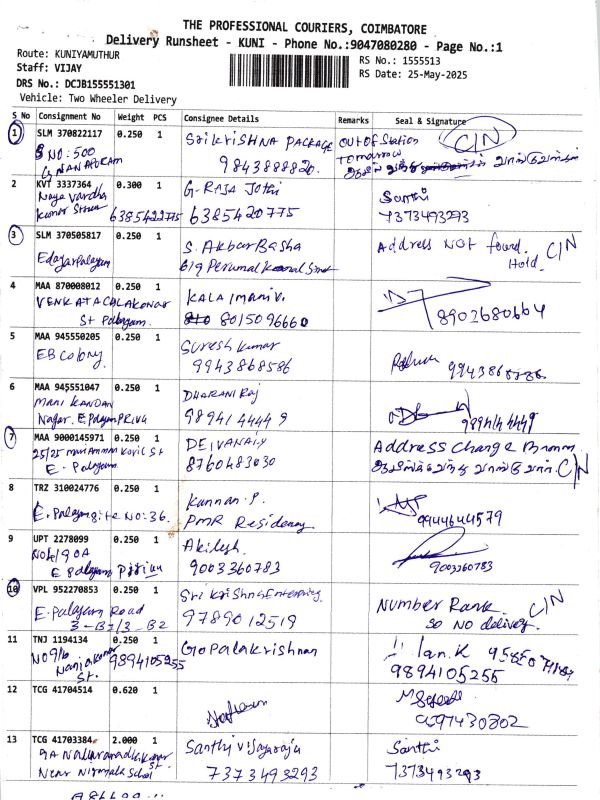 THE PROFESSIONAL COURIERS, COIMBATORE
Delivery Runsheet - KUNI - Phone No.:9047080280 - Page No.:1
Route: KUNIYAMUTHUR
RS No.: 1555513
Staff: VIJAY
RS Date: 25-May-2025
DRS No.: DCJB155551301
Vehicle: Two Wheeler Delivery
S No Consignment No Weight PCS Consignee Details Remarks Seal & Signature
1 SLM 370822117 0.250 1 SriKRISHNA PACKAGE OUT OF Station C/N
S NO: 500 9843888820 Tomorrow
2 KVT 3337364 0.300 1 G. RAJA Jothi Santhi
6385422775 6385420775 7373493293
3 SLM 370505817 0.250 1 S. AkbarBasha Address NOT found. C/N
Edayarpalayam 619 Perumal Hold.
4 MAA 870008012 0.250 1 KALAIMANI V.
VENKATACHALAKONAR 8015096660 8902680664
St Palayam.
5 MAA 945550205 0.250 1 Suresh Kumar
EB Colony 9943868586
6 MAA 945551047 0.250 1 DHARANI Raj
MANI KANDAN 9894144449 9894144449
Nagar. E.Palayam PRIVU
7 MAA 9000145971 0.250 1 DEIVANAIY Address Change
25/25 Mariamman Kovil St 8760483030 C/N
E. Palayam
8 TRZ 310024776 0.250 1 Kannan P.
E. Palayam NO: 36. PMR Residency 9944644579
9 UPT 2278099 0.250 1 Akilesh.
E Palayam Pirivu 9003360783 9003360783
10 VPL 952270853 0.250 1 Sri Krishna Enterprises Number Rank C/N
E. Palayam Road 9789012519 So No delivery.
3-B1/3-B2
11 TNJ 1194134 0.250 1 Gopalakrishnan
NO 9/6 Nanjakonar St. 9894105255 9894105255
12 TCG 41704514 0.620 1
13 TCG 41703384 2.000 1 Santhi Vijayaraju Santhi
Near Nirmala School 7373493293 7373493293